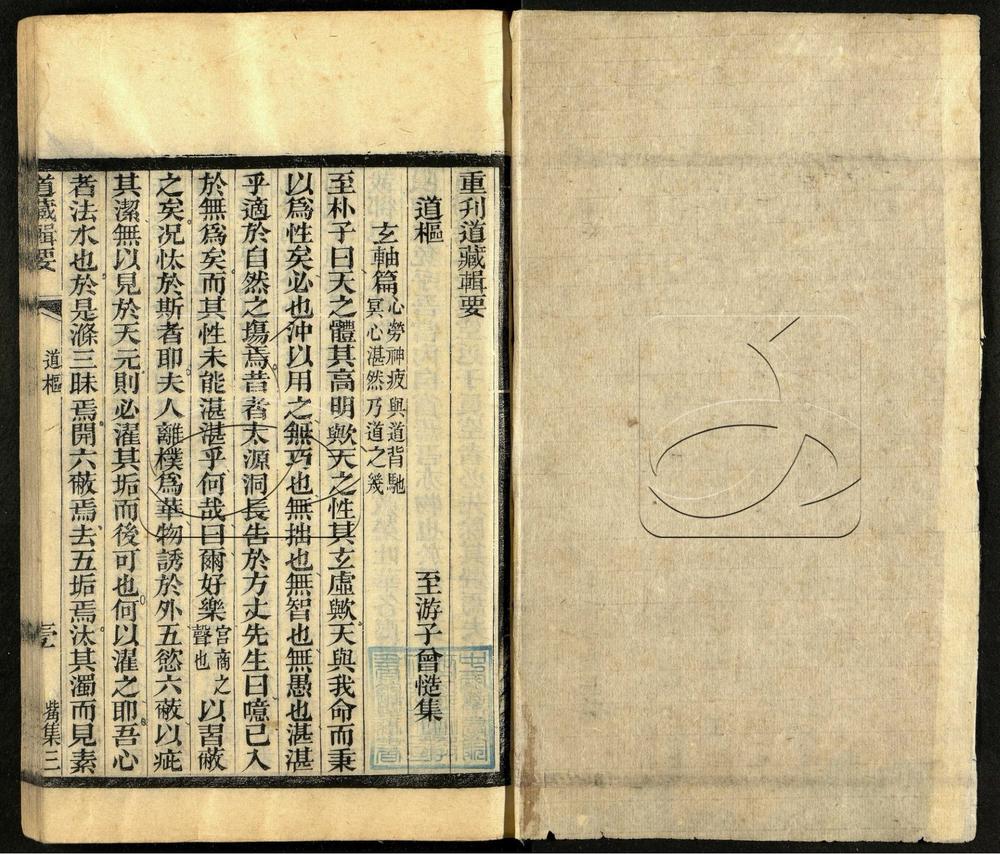 重刊道藏輯要
道樞
至游子曾慥集
玄軸篇心勞神疲與道背馳冥心湛然乃道之幾
至朴子曰天之體其高明歟天之性其玄虛歟天與我命而秉
以爲性矣必也沖以用之無巧也無拙也無智也無愚也湛湛
乎適於自然之塲焉昔者太源洞長告於方丈先生曰噫已入
於無爲矣而其性未能湛湛乎何哉曰爾好樂宮商之聲也以習蔽
之矣况怢於斯者耶夫人離樸爲華物誘於外五慾六蔽以疵
其潔無以見於天元則必濯其垢而後可也何以濯之耶吾心
者法水也於是滌三昧焉開六蔽焉去五垢焉汰其濁而見素
道藏輯要
道樞
壹
觜集三